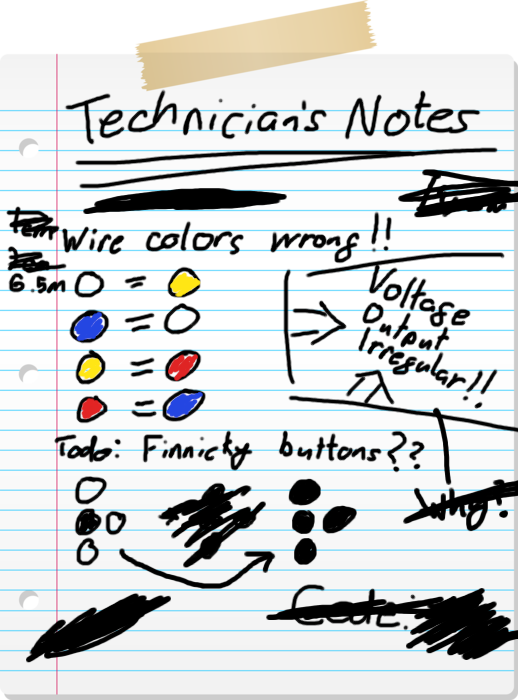 Technician's Notes
Wire colors wrong!!
6.5m
=
=
=
=
Voltage
Output
Irregular!!
Todo: Finnicky buttons??
Why?
Code: